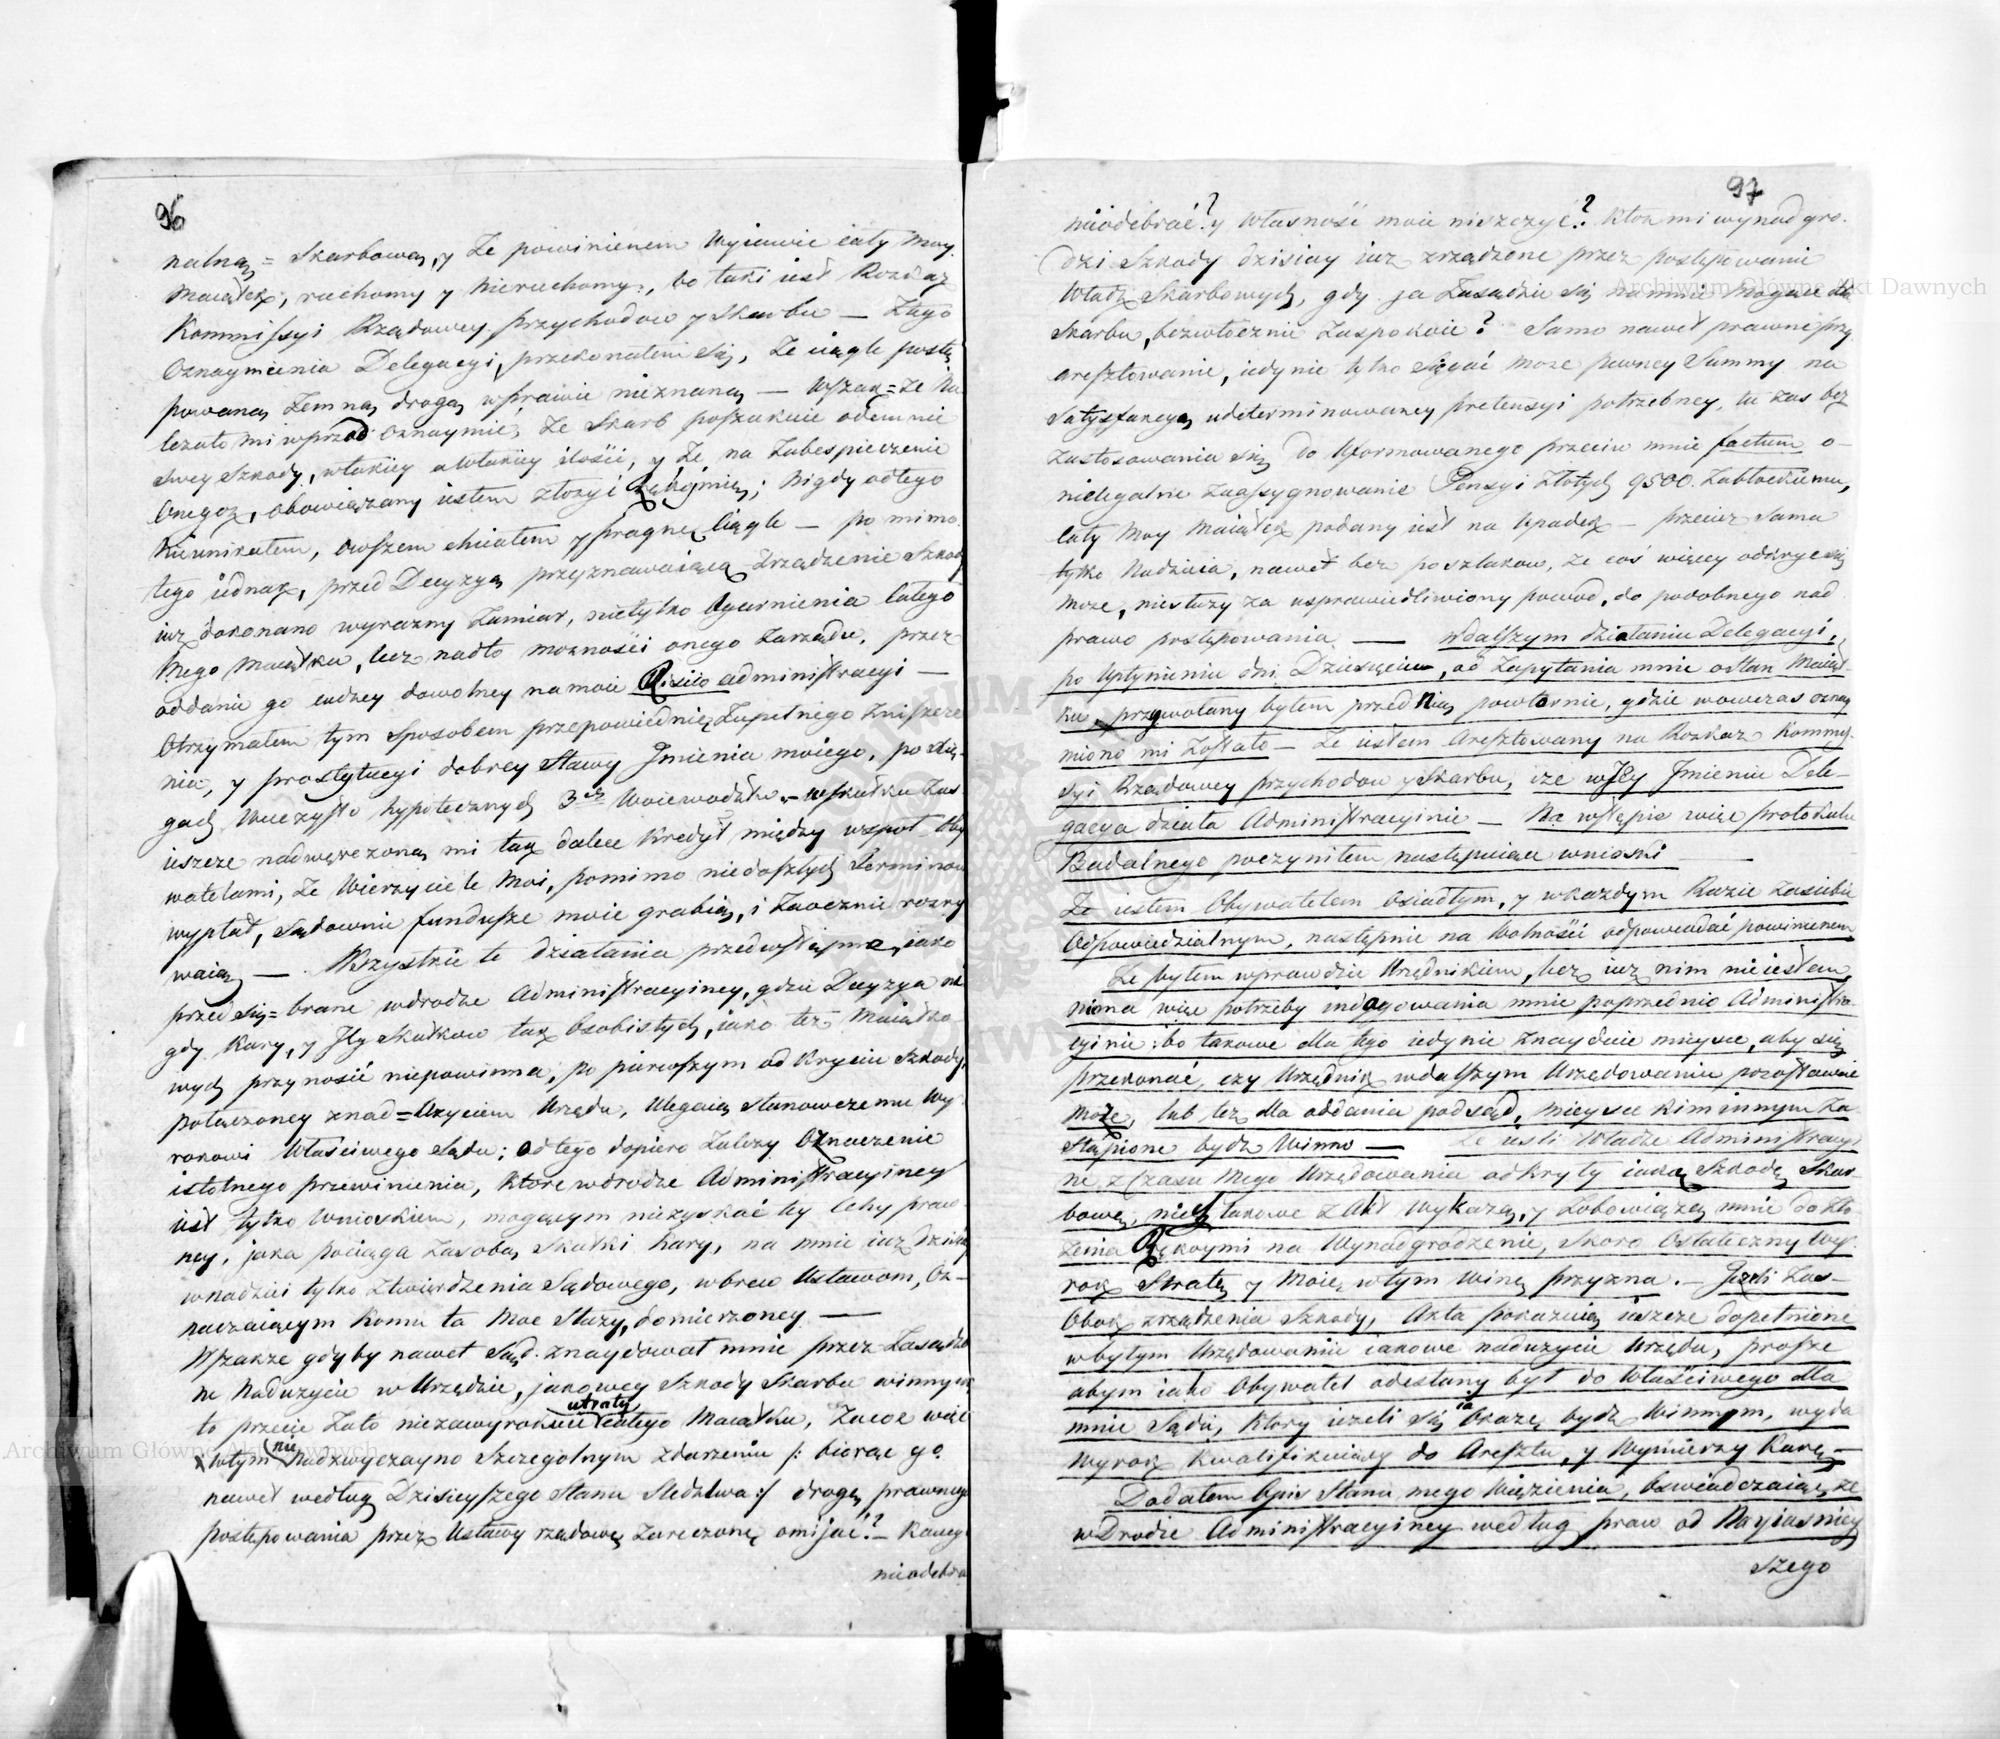 96
nalną = Skarbową, y Że powinienem Wyiawić cały Moy
Maiątek, ruchomy y Nieruchomy, bo taki iest Rozkaz
Kommissyi Rządowey przychodow y Skarbu — Z tego
Oznaymienia Delegacyi, przekonałem się, Że ciągle postę
powaną Zemną drogą w prawie nieznaną — Wszak=Że Na
leżało mi wprzod oznaymić, Że Skarb poszukuie odemnie
Swey Szkody, w takiey a w takiey ilości, y Że na Zabespieczenie
Onegoż, obowiązany iestem złożyć rękoymią; Nigdy od tego
Nieunikałem, Owszem chciałem y pragnę Ciągle — po mimo
tego iednak, przed Decyzyą przyznawaiącą Zrządzenie Szkody
iuż dokonano wyrazny Zamiar, nietylko Ogarnienia Całego
Mego Maiątku, lecz nadto możności onego Zarządu, przez
oddanie go cudzey dowolney na moie Risico administracyi —
Otrzymałem tym Sposobem przepowiednię Zupełnego Zniszcze
nia, y prostytucyi dobrey Sławy Imienia moiego, po Księ-
gach Wieczysto hypotecznych 3ch Woiewodztw — w skutku Zas
ieszcze nadwerezoną mi tak dalece Kredyt między wspoł Oby
watelami, Że Wierzyciele Moi, pomimo niedoszłych Terminow
wypłat, Sądownie fundusze moie grabią, i Zaocznie rozry
waią — Wszystkie te działania przedwstępne, iako
przed się=brane w drodze Administracyiney, gdzie Decyzya ni
gdy Kary, y Jey Skutkow tak Osobistych, iako też Maiątko
wych przynosić niepowinna, po pierwszym od Kryciu Szkody,
połączoney z nad=Użyciem Urzędu, Ulegaią Stanowczemu Wy
rokowi Właściwego Sądu; od tego dopiero Zależy Oznaczenie
istotnego przewinienia, Ktore w drodze Administracyiney
iest tylko Wnioskiem, mogącym niezyskać tey Cechy praw
ney, jaka pociąga Za sobą Skutki Kary, na mnie iuż Dzisiay
w nadziei tylko Ztwierdzenia Sądowego, wbrew Ustawom, Oz-
naczaiącym Komu ta Moc Służy, domierzoney —
Wszakże gdyby nawet Sąd znaydował mnie przez Zasądze
ne Nadużycie w Urzędzie, jakowey Szkody Skarbu winnym
to przecie Zato niezawyrokuie utraty całego Maiątku, Zacoż więc
w tym nie Nadzwyczayno Szczegolnym zdarzeniu /: biorąc go
nawet według Dzisieyszego Stanu Sledztwa :/ drogę prawnego
postępowania przez Ustawy rządowe Zaręczoną omijać? — Kaucyi
nieodebra
97
nieodebrać? y Własność moie niszczyć? Ktoż mi wynadgro-
dzi Szkody dzisiay iuż zrządzone przez postępowanie
Władz Skarbowych, gdy ja Zasądzić się na mnie Mogące dla
Skarbu, bezwłocznie Zaspokoię? Samo nawet prawne przy
aresztowanie, iedynie tylko Sięgać może pewney Summy na
Satysfakcyą udeterminowaney pretensyi potrzebney, tu Zas bez
Zastosowania się do Uformowanego przeciw mnie factum o-
nielegalne Zaassygnowanie Pensyi Złotych 9500. Zabłockiemu,
Cały Moy Maiątek podany iest na Upadek — przeciesz Sama
tylko Nadzieia, nawet bez poszlakow, że coś więcey odkryć się
może, niesłuży za usprawiedliwiony powod, do podobnego nad
prawo postępowania — W dalszym działaniu Delegacyi,
po Upłynieniu dni Dziesięciu, od Zapytania mnie o Stan Maiąt-
ku, przywołany byłem przed Nią powtornie, gdzie wowczas oznay
miono mi Zostało — Że iestem Aresztowany na Rozkaz Kommis-
syi Rządowey przychodow y Skarbu, i że w Jey Imieniu Dele-
gacya działa Administracyinie — Na wstępie więc protokułu
Badalnego poczyniłem następuiące wnioski —
Że iestem Obywatelem Osiadłym, y w każdym Razie Za siebie
Odpowiedzialnym, następnie na Wolności odpowiadać powinienem
Że byłem wprawdzie Urzędnikiem, lecz iuż nim nieiestem,
niema więc potrzeby indagowania mnie poprzednio Administra-
cyinie: bo takowe dla tego iedynie Znayduie mieysce, aby się
przekonać, czy Urzędnik w dalszym Urzędowaniu pozostawać
Może, lub też dla oddania pod Sąd, Mieysce Kim innym Za
Stąpione bydz Winno — Że iesli Władze Administracyi
ne z Czasu Mego Urzędowania odkryły iaką Szkodę Skar-
bową, niech takowe z Akt Wykażą, y Zobowiążą mnie do Zło
żenia Rękoymi na Wynadgrodzenie, Skoro Ostateczny Wy-
rok Stratę y Moię w tym Winę przyzna. — Jeżeli Zas-
Obok zrządzenia Szkody, Akta pokazuią ieszcze dopełnione
w byłym Urzędowaniu iakowe nadużycie Urzędu, proszę
abym iako Obywatel odesłany był do Właściwego dla
mnie Sądu, Ktory ieżeli się Okażę bydz Winnym, wyda
Wyrok Kwalifikuiący do Aresztu, y Wymierzy Karę —
Dodałem Opis Stanu mego Więzienia, Oswiadczaiąc, że
w Drodze Administracyiney według praw od Nayiasniey
szego